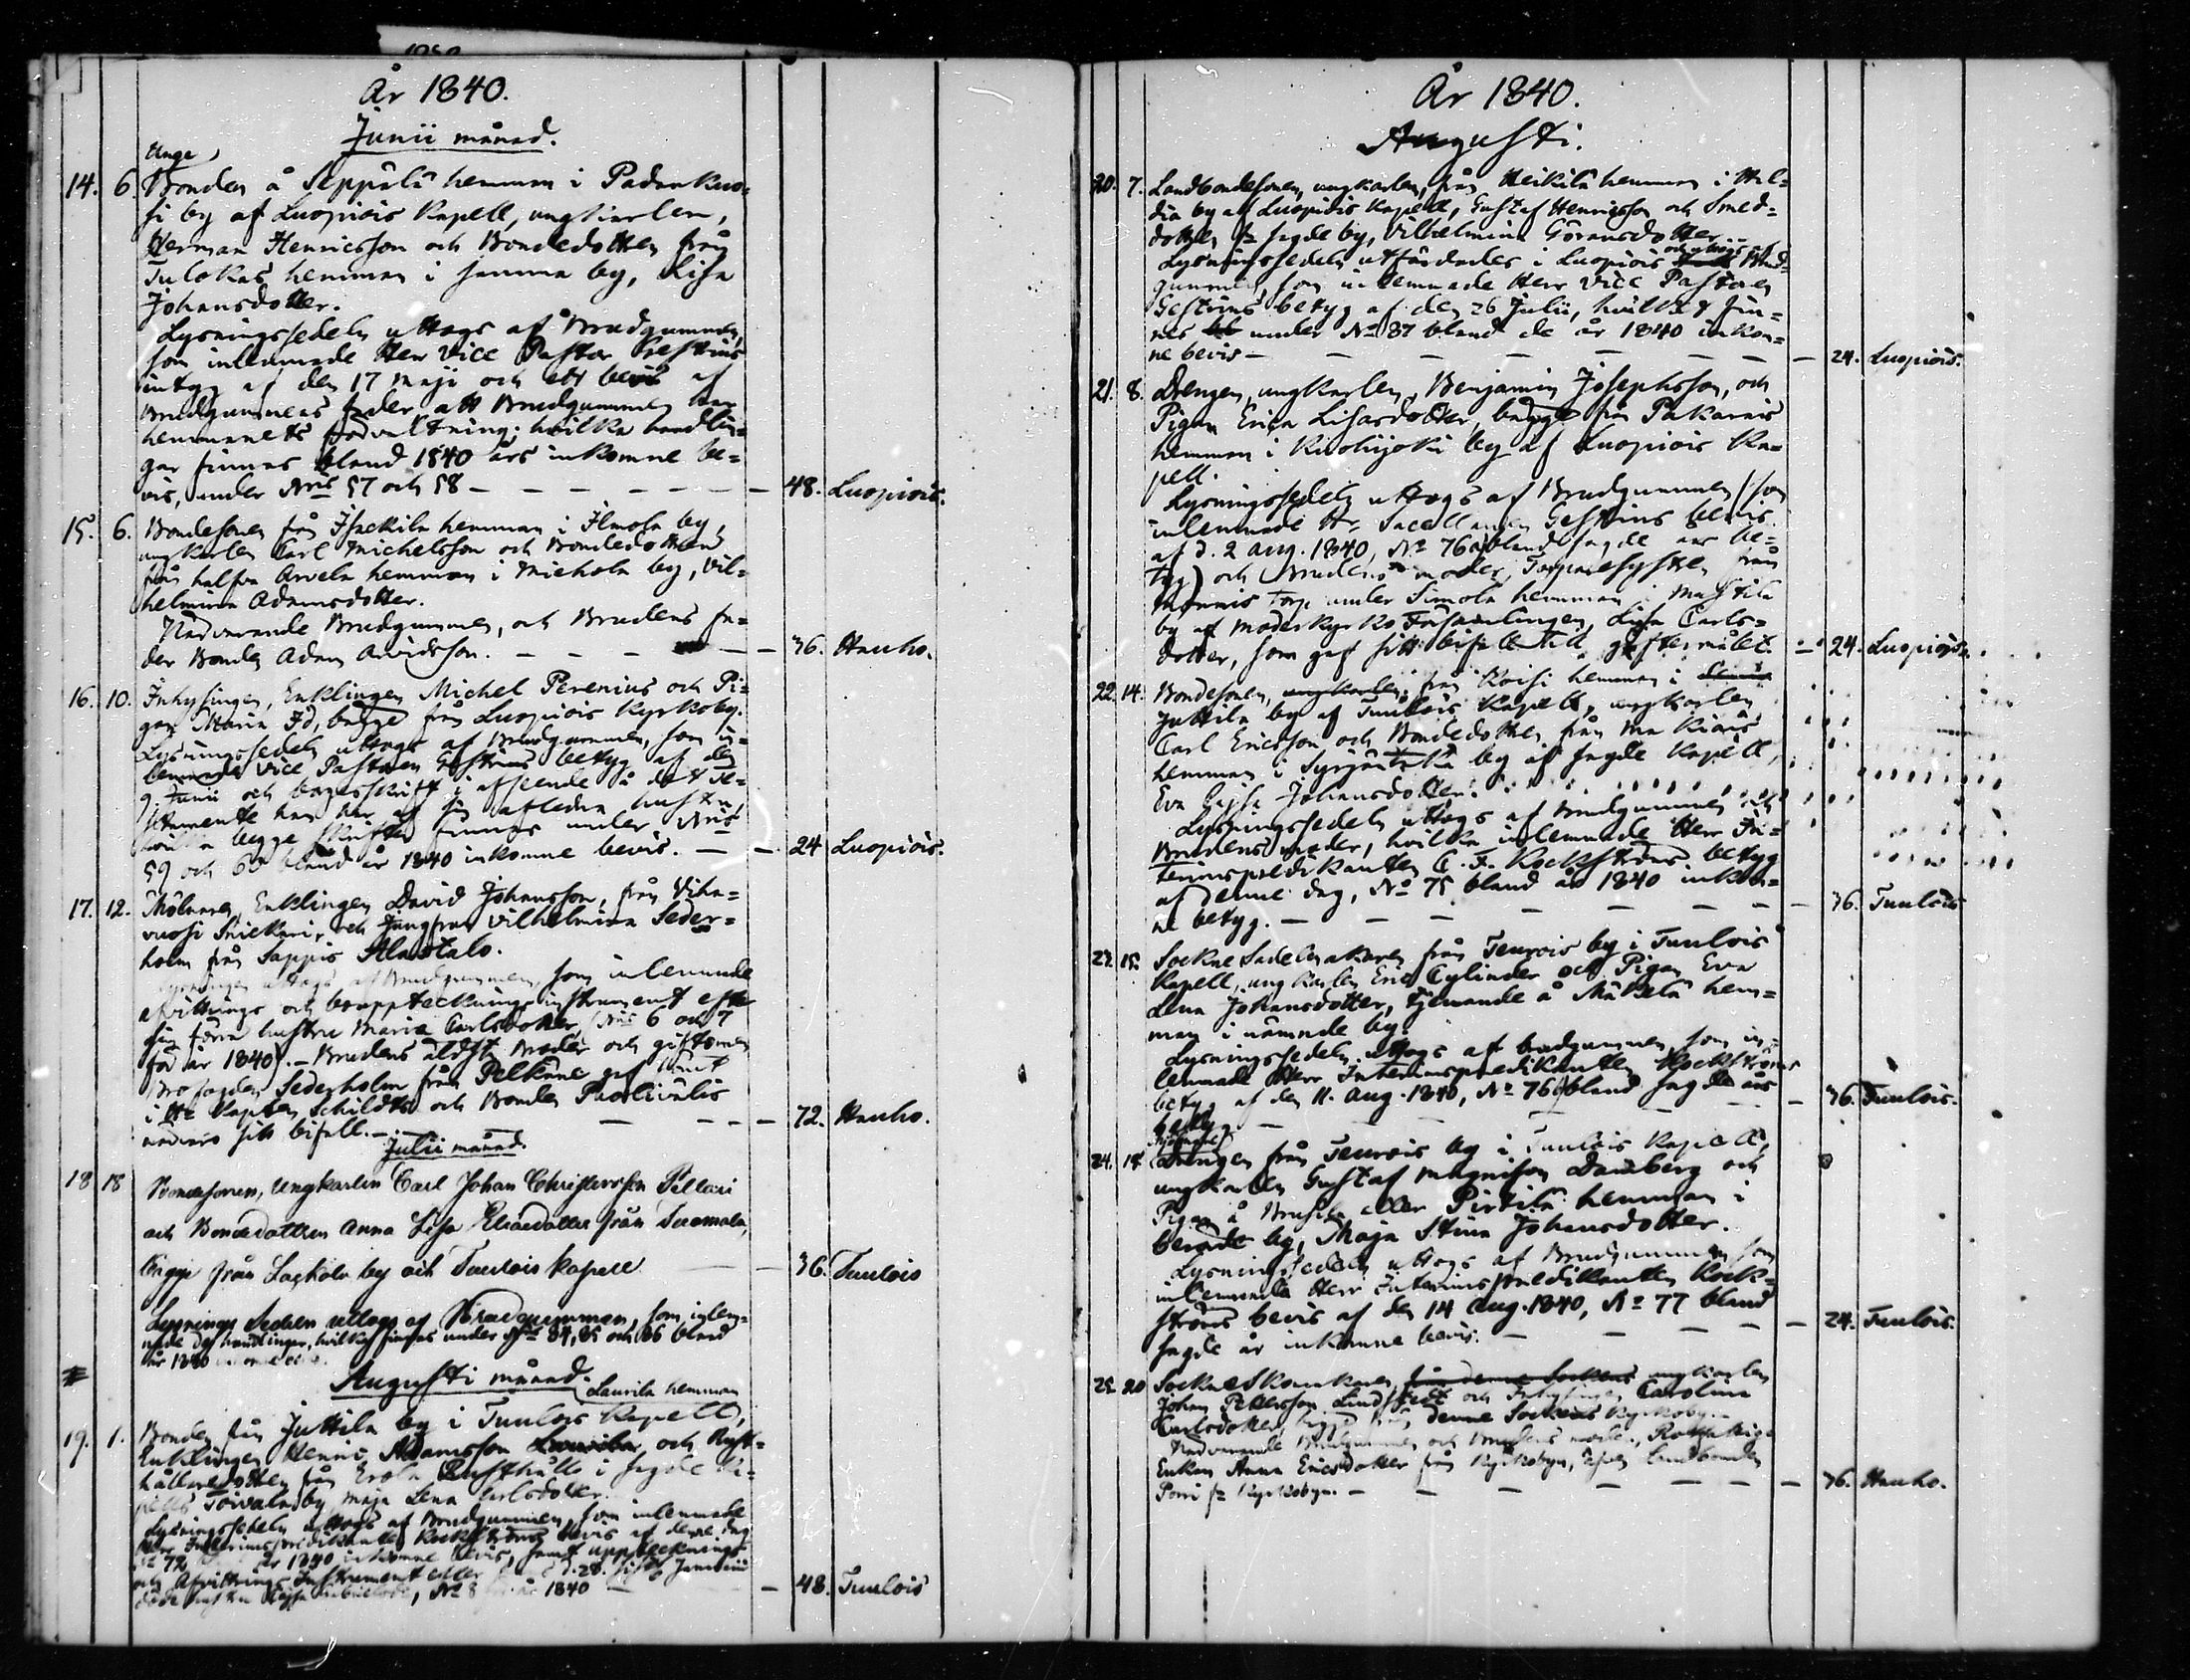 År 1840.
Junii månad.
Unge
14. 6. Bonden å Seppälä hemman i Padankos-
ki by af Luopiois Kapell, ungkarlen,
Herman Henricsson och Bondedottren från
Tulokas hemman i samma by, Lisa
Johansdotter.
Lysningssedeln uttogs af Brudgummen,
som inlemnade Herr Vice Pastor Gestrins
intyg af den 17 Maji och ett bevis af
Brudgummens fader att Brudgummen har
hemmanets förvaltning; hvilka handlin-
gar finnas bland 1840 års inkomne be-
vis, under Nris 57 och 58 — 48. Luopiois.
15. 6. Bondesonen från Isackila hemman i Ilmola by,
ungkarlen Carl Michelsson och Bondedottren
från halfva Arvela hemman i Miehola by, Vil-
helmina Adamsdotter.
Närvarande Brudgummen, och Brudens fa-
der Bonden Adam Arvidsson. — 36. Hauho.
16. 10. Inhysingen, Enklingen Michel Perenius och Pi-
gan Maria Id, bägge från Luopiois Kyrkoby.
Lysningssedeln uttogs af Brudgummen, som in-
lemnade Vice Pastoren Gestrins betyg af den
9. Junii och bägge skrift i afseende å det Te-
stamente han har af sin aflidna hustru,
hvilka begge skrifter finnas under Nris
59 och 60 bland år 1840 inkomne bevis. — 24 Luopiois.
17. 12. Mölnaren, Enklingen David Johansson, från Viha-
vuosi Snickari, och Jungfrun Vilhelmina Seder-
holm från Sappis Alastalo.
Lysningen uttogs af Brudgummen, som inlemnade
afvittrings och bouppteckningsinstrument efter
sin förra hustru Maria Carlsdotter, (Nris 6 och 7
för år 1840). — Brudens äldsta broder och giftoman
Sederholm från Pelkäne gaf samt
i Hr Kapten Schildts och Bonden Paslivälis
närvaro sitt bifall. — 72. Hauho.
Julii månad.
18 18 Bondesonen, Ungkarlen Carl Johan Christersson Pillari
och Bondedottren Anna Lisa Eliædotter från Tuomola,
bägge från Lagkola by och Tuulois kapell — 36. Tuulois
Lysnings Sedeln uttogs af Brudgumman, som inlem-
nade de handlingar, hvilka finnas under Nris 84, 85 och 86 bland
år 1840
Augusti månad.
Laurila hemman
19. 1. Bonden från Juttila by i Tuulois Kapell,
Enklingen Henric Adamsson och Rust-
hållaredottren från Erola Rusthåll i sagde Ka-
pells Toivala by, Maja Lena Carlsdotter.
Lysningssedeln uttogs af Brudgummen, som inlemnade
Herr Interimspredikanten Rockströms bevis af denne dag
No 72 år 1840 inkomne bevis, samt upptecknings
och Afvittrings Instrument efter
No 8 för år 1840 — 48. Tuulois
År 1840.
Augusti.
20. 7. Landbondesonen, ungkarlen, från Heikilä hemman i Hal-
dia by af Luopiois Kapell, Gustaf Henricsson och Smed-
dottren fr sagde by, Vilhelmina Göransdotter.
Lysningssedeln utfärdades i Luopiois och uttogs af Brud-
gummen, som inlemnade Herr Vice Pastoren
Gestrins betyg af den 26 Julii, hvilket fin-
nes under No 87 bland de år 1840 inkom-
ne bevis — 24. Luopiois.
21. 8. Drengen, ungkarlen, Benjamin Josephsson, och
Pigan Erica Lisasdotter, bägge från Pakarais
hemman i Kuohijoki by af Luopiois Ka-
pell.
Lysningssedeln uttogs af Brudgummen (som
inlemnade Hr Sacellanen Gestrins bevis
af d. 2 Aug. 1840, No 76 a) bland sagde års be-
tyg) och Brudens moder, Torparesystren från
Torp under Simola hemman i Mattila
by af Moderkyrko Församlingen, Lisa Carls-
dotter, som gaf sitt bifall till giftermålet. — 24. Luopiois.
22. 14. Bondesonen, ungkarlen, från Koisi hemman i
Juttila by af Tuulois Kapell, ungkarlen
Carl Ericsson och Bondedottren från Makiais
hemman i Syrjäntaka by af sagde Kapell,
Eva Cajsa Johansdotter.
Lysningssedeln uttogs af Brudgummen och
Brudens moder, hvilka inlemnade Herr In-
terimspredikanten C. F. Rockströms betyg
af denne dag, No 75 bland år 1840 inkom-
ne betyg. — 36. Tuulois
23. 15. Sockne Sadelmakaren från Teurois by i Tuulois
Kapell, ungkarlen Eric Cylinder och Pigan Eva
Lena Johansdotter, tjenande å Mäkelä hem-
man i nämnde by.
Lysningssedeln uttogs af brudgummen, som in-
lemnade Herr Interimspredikanten Rockströms
betyg af den 11. Aug. 1840, No 76 b) bland sagde års
betyg. — 36. Tuulois.
24. 15. Drengen från Teurois by i Tuulois Kapell,
ungkarlen Gustaf Magnisson Damberg och
Pigan å Brusila eller Pirtilä hemman i
berörde by, Maja Stina Johansdotter.
Lysningssedeln uttogs af Brudgummen som
inlemnade Herr Interimspredikanten Rock-
ströms bevis af den 14 Aug. 1840, No 77 bland
sagde år inkomne bevis. — 24. Tuulois.
25. 20 Sockneskomakaren från denne Socken ungkarlen
Johan Pettersson Lindstedt och Inhysingen Carolina
Carlsdotter, bägge från denne Sockens Kyrkoby.
Närvarande Brudgummen och Brudens moder,
Enkan Anna Ericsdotter från Kyrkobyn, äfven landbonden
Porri fr Kyrkobyn. — 36. Hauho.